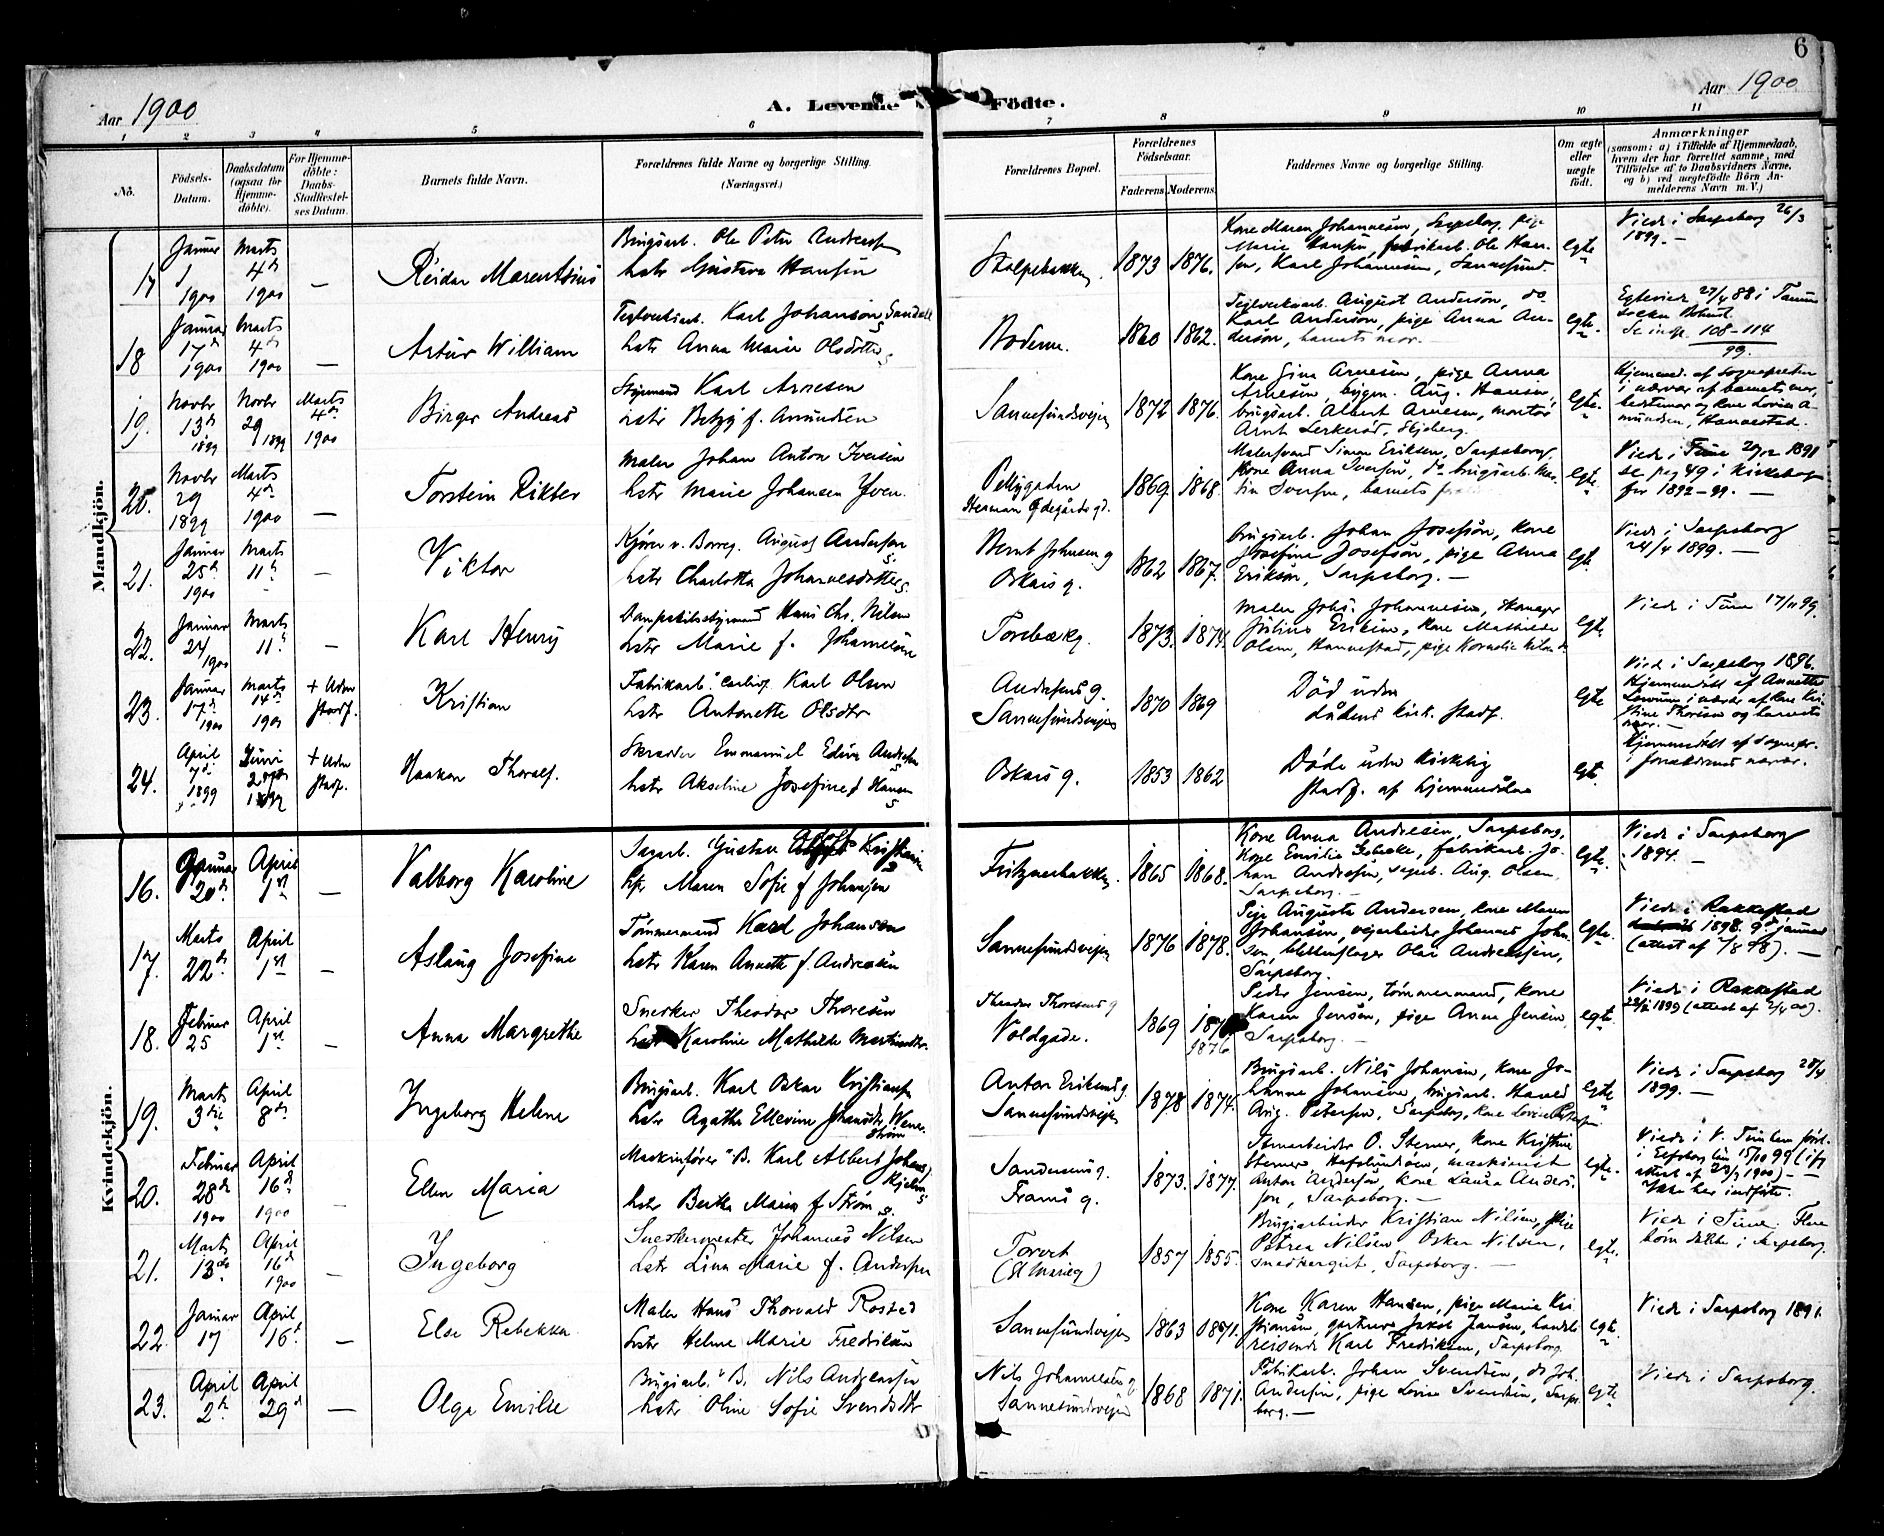 6
Aar 1900
A. Levende Födte.
Aar 1900
1 2 3 4 5 6 7 8 9 10 11
No.
Födsels-Datum.
Daabsdatum (ogsaa for Hjemme-døbte).
For Hjemme-döbte: Daabs-Stadfæstel-ses Datum.
Barnets fulde Navn.
Forældrenes fulde Navne og borgerlige Stilling. (Næringsvei.)
Forældrenes Bopæl.
Forældrenes Födselsaar.
Faderens. Moderens.
Faddernes Navne og borgerlige Stilling.
Om ægte eller uægte födt.
Anmærkninger
(saasom: a) i Tilfælde af Hjemmedaab, hvem der har forrettet samme, med Tilföielse af to Daabsvidners Navne, og b) ved uægtefödte Börn An-melderens Navn m. V.)
Mandkjön.
17
Januar 1 1900
Marts 4de 1900
—
Reidar Marentsius
Brugsarb. Ole Peter Andreassen
hstr Gustava Hansen
Stolpebakken.
1873 1876.
Kone Maren Johannesen, Sarpsborg, pige
Marie Hansen, fabrikarb. Ole Han-
sen, Karl Johannesen, Sannesund.
egte
Viede i Sarpsborg 26/3
1899. —
18
Januar 17de 1900
Marts 4de 1900
—
Artur William
Teglverksarb. Karl Johanson Sandell
hstr Anna Marie Olsdotter
Boderne.
1860 1862.
Teglverksarb. August Anderson, do
Karl Anderson, pige Anna An-
derson, barnets mor.
egte.
Egteviede 27/4 88 i Tanum
socken Bohusl.
Se indf. 108-114
99.
19.
Novbr 13de 1899
Novbr 29 1899
Marts 4de 1900
Birger Andreas
Styrmand Karl Arnesen
hstr Betzy f. Amundsen
Sannesundsveien
1872 1876.
Kone Gina Arnesen, pige Anna
Arnesen, bygm. Aug. Hansen,
brugsarb. Albert Arnesen, montör
Arnt Lerkerød, Skjeberg.
egte.
Hjemmed. af Sognepresten
i nærvær af barnets mor,
bestemor og kone Lovise A-
mundsen, Hannestad.
20.
Novbr 29 1899
Marts 4de 1900
—
Torstein Rikter
Maler Johan Anton Iversen
hstr Marie Johansen Iven.
Pellygaden
Herman Ødegårds gd.
1869 1868.
Malersvend Simon Eriksen, Sarpsborg,
Kone Anna Iversen, do brugsarb. Mar-
tin Iversen, barnets far
egte.
Viede i Tune 29/12 1891
se pag 49 i Kirkebog
for 1892-99. —
21.
Januar 25de 1900
Marts 11te
—
Viktor
Kjører v. Borreg. August Anderson
hstr Charlotta Johannesdotter
Bernt Johnsens g
Oskars g.
1862 1867.
Brugsarb. Johan Josefson, kone
Josefine Josefson, pige Anna
Erikson, Sarpsborg. —
egt.
Viede i Sarpsborg
24/4 1899. —
22.
Januar 24 1900
Marts 11te
—
Karl Henry
Dampskibsstyrmand Hans Chr. Nilsen
hstr Marie f. Johannesen
Torebækg.
1873. 1874.
Maler Johs. Johannesen,
Julius Eriksen, kone Mathilde
Olsen, Hannestad, pige Kornelia Nilsen
egte.
Viede i Tune 17/11 99.
23.
Januar 17de 1900
Marts 14de 1900
+ Uden stadf.
Kristian
Fabrikarb. Karl Olsen
hstr Antonette Olsdtr
Andresens g.
Sannesundsveien
1870 1869
Död uden
dåbens kirk. stadf.
egte
Viede i Sarpsborg 1896.
Hjemmedöbt af Annette
24.
April 7de 1899
Juni 1899
+ Uden stadf.
Haakon Thoralf.
Skrædder Emmanuel Edvin Andersson
hstr Akseline Josefine f Hansen
Oskars g.
1853 1862
Döde uden kirkelig
stadf. af hjemmedåben
egt.
Hjemmedöbt af Sognepr.
i forældrenes nærvær.
Kvindekjön.
16.
Januar 20de
April 1ste
—
Valborg Karoline
Sagarb. Gustav Adolf Kristiansen
hstr Maren Sofie f Johansen
Fritznerbakken
1865 1868.
Kone Anna Andresen, Sarpsborg,
Kone Emilie, fabrikarb. Jo-
han Andresen, Aug. Olsen,
Sarpsborg. —
egte.
Viede i Sarpsborg
1894. —
17.
Marts 22de
April 1ste
—
Aslaug Josefine
Tömmermand Karl Johansen
hstr Karen Annette f. Andresen
Sannesundsveien
1876 1878.
Pige Augusta Andersen, kone Maren
Johansen, veiarbeider Johannes Johan-
sen, Olai Andreassen,
Sarpsborg.
egte.
Viede i Rakkestad
1898. 9de januar
(attest af 7/5 98). —
18.
Februar 25
April 1ste
—
Anna Margrethe
Snekker Theodor Thoresen
hstr Karoline Mathilde Martinsdtr.
Theodor Thoresens g
Voldgade.
1869
1876
Peder Jensen, tömmermand, kone
Karen Jensen, pige Anna Jensen
Sarpsborg. —
egte.
Viede i Rakkestad
1899 (attest af 2/4 00).
19.
Marts 3die
April 8de
Ingeborg Helene
Brugsarb. Karl Oskar Kristiansen
hstr Agathe Ellevine Johansdtr Wenn-
ström
Anton Eriksens g.
Sannesundsveien
1878 1874.
Brugsarb. Nils Johansen, kone Jo-
hanne Johansen, brugsarb. Harald
Aug. Petersen, Sarpsborg, kone Lovise Petersen
egte
Viede i Sarpsborg 28/4
1899. —
20.
Februar 28de 1900
April 16de 1900
—
Ellen Maria
Maskinförer B. Karl Albert Johans
hstr Berta Maria f Ström
Sandersens g.
Frams g.
1873. 1877.
Stenarbeider O. Sterner, kone Kristine
Sterner, Hafslundsöen, maskinist
Anton Anderson, kone Laura Anders-
son, Sarpsborg. —
egte.
Ikke her indförte.
21.
Marts 13de
April 16de 1900
—
Ingeborg
Snedkermester Johannes Nilsen
hstr Lina Marie f. Andersen
Torvet
1857 1855.
Brugsarbeider Kristian Nilsen, pige
Petrea Nilsen Oskar Nilsen,
snedkergut, Sarpsborg. —
egte.
Viede i Tune. Flere
börn döbte i Sarpsborg.
22.
Januar 17
April 16de
—
Else Rebekka
Maler Hans Thorvald Rostad
hstr Helene Marie Fredriksen
Sannesundsveien
1863 1871.
Kone Karen Hansen, pige Marie Kri-
stiansen, gartner Jakob Jansen, handels-
reisende Karl Fredriksen, Sarpsborg.
egte.
Viede i Sarpsborg 1891.
23.
April 2de
April 29de
—
Olga Emilie
Brugsarb. B. Nils Andersson
hstr Oline Sofie Svendsdtr
Nils Johannessens g
Sannesundsveien
1868 1871.
Fabrikarb. Johan Svendsen, do Joh.
Andersen, pige Lovise Svendsen, Sarps-
borg. —
egte
Viede i Sarpsborg.